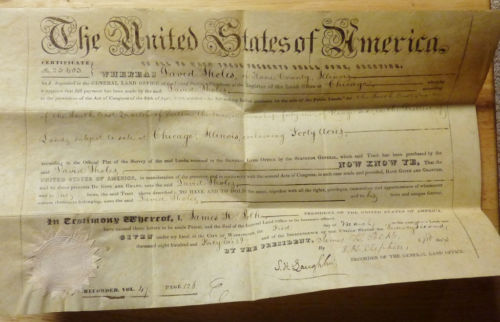 The United States of America,
CERTIFICATE TO ALL TO WHOM THESE PRESENTS SHALL COME, GREETING,
No. 23603 WHEREAS David Sholes, of Kane County, Illinois
has deposited in the GENERAL LAND OFFICE of the United States, a Certificate of the Register of the Land Office at Chicago
it appears that full payment has been made by the said David Sholes
to the provisions of the Act of Congress of the 24th of April,
of the South East Quarter of Section
Lands subject to sale at Chicago, Illinois, containing Forty Acres,
according to the Official Plat of the Survey of the said Lands, returned to the General Land Office by the SURVEYOR GENERAL, which said Tract has been purchased by the
said David Sholes NOW KNOW YE, That the
UNITED STATES OF AMERICA, in consideration of the premises, and in conformity with the several Acts of Congress, in such case made and provided, HAVE GIVEN AND GRANTED,
and by these presents DO GIVE AND GRANT, unto the said David Sholes
and to his heirs, the said Tract above described; TO HAVE AND TO HOLD the same, together with all the rights, privileges, immunities and appurtenances of whatsoever
nature thereunto belonging, unto the said David Sholes and to his heirs and assigns forever.
In Testimony Whereof, I, James K. Polk PRESIDENT OF THE UNITED STATES OF AMERICA,
have caused these letters to be made Patent, and the Seal of the General Land Office to be hereunto affixed.
GIVEN under my hand, at the City of Washington, the First day of
and of the Independence of the United States the Seventy Second
BY THE PRESIDENT, James K. Polk
By
S. H. Laughlin RECORDER OF THE GENERAL LAND OFFICE.
RECORDED, VOL. PAGE 128